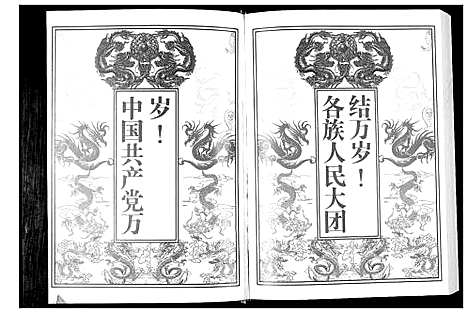 中国共产党万
岁！
各族人民大团
结万岁！